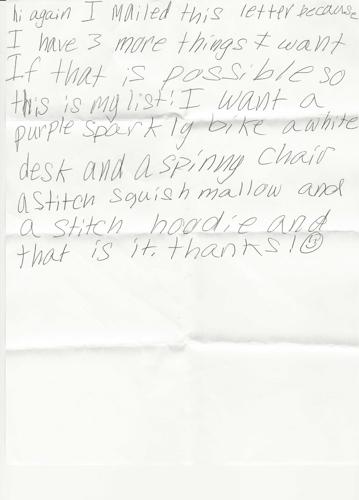 hi again I Mailed this letter because
I have 3 more things I want
If that is possible so
this is my list! I want a
purple sparkly bike a white
desk and a spinny chair
a stitch squishmallow and
a stitch hoodie and
that is it. thanks!